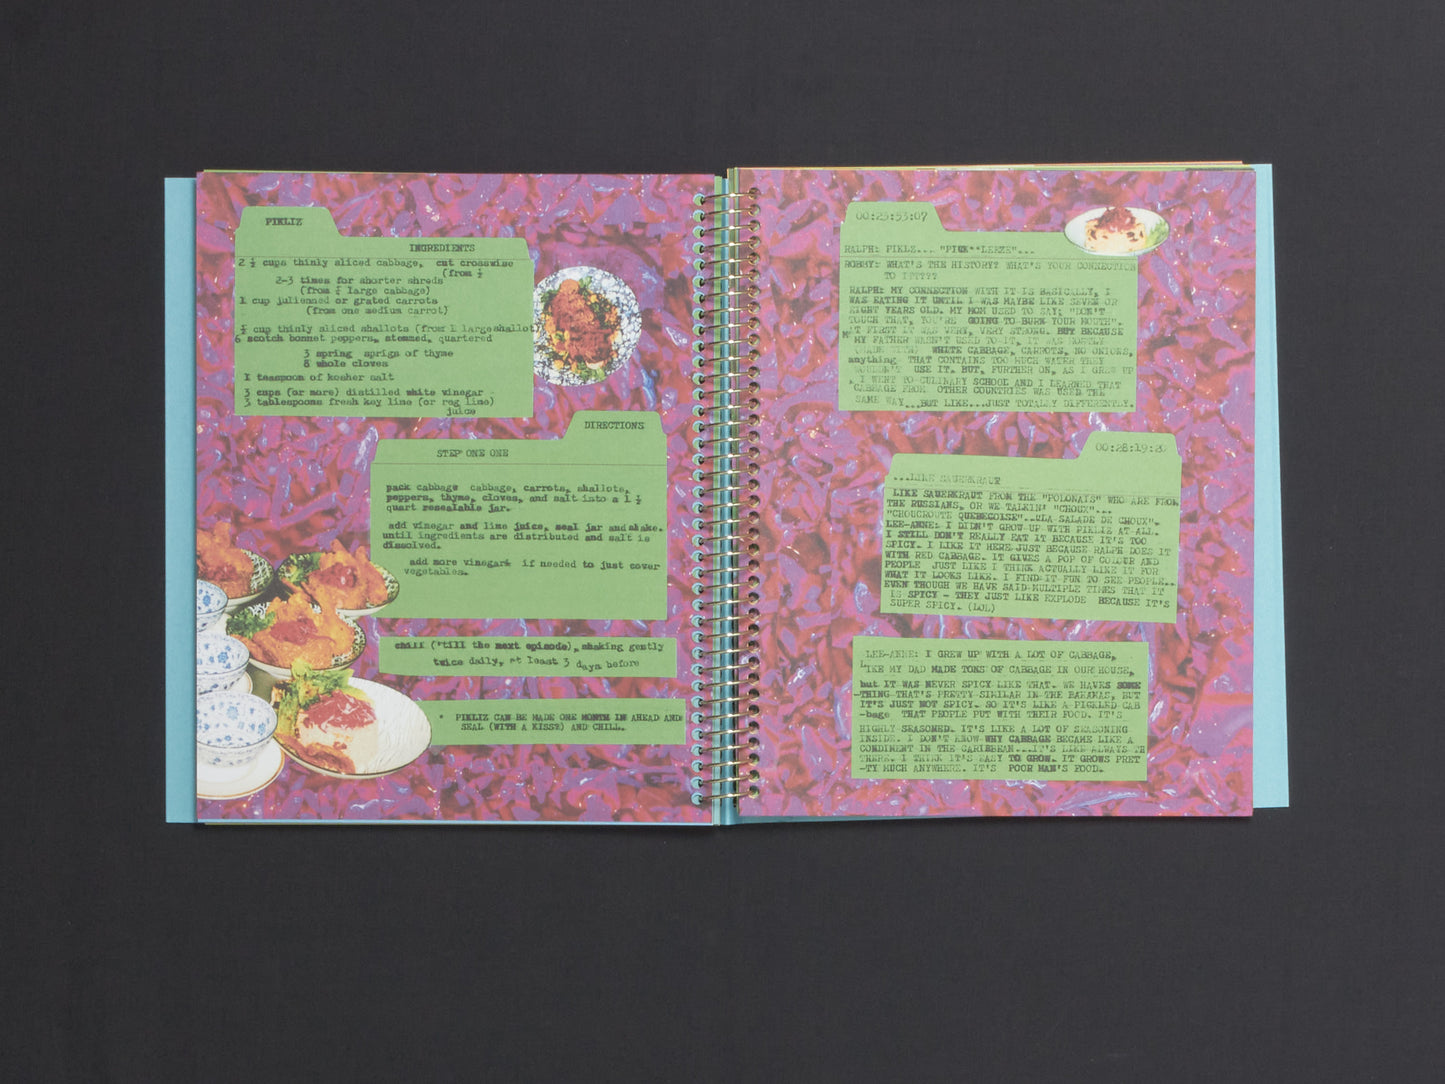 PIKLIZ
INGREDIENTS
2 ½ cups thinly sliced cabbage, cut crosswise
(from ½
2-3 times for shorter shreds
large cabbage)
1 cup julienned or grated carrots
(from one medium carrot)
½ cup thinly sliced shallots (from 1 large shallot)
6 scotch bonnet peppers, stemmed, quartered
3 spring sprigs of thyme
8 whole cloves
1 teaspoon of kosher salt
3 cups (or more) distilled white vinegar
3 tablespoons fresh key lime (or reg lime)
juice
DIRECTIONS
STEP ONE ONE
pack cabbage cabbage, carrots, shallots,
peppers, thyme, cloves, and salt into a 1 ½
quart resealable jar.
add vinegar and lime juice, seal jar and shake.
until ingredients are distributed and salt is
dissolved.
add more vinegar if needed to just cover
vegetables.
chill ('till the next episode), shaking gently
twice daily, at least 3 days before
* PIKLIZ CAN BE MADE ONE MONTH IN AHEAD AND
SEAL (WITH A KISS?) AND CHILL.
00:23:53:07
RALPH: PIKLZ... "PICK**LEEZE"...
ROBBY: WHAT'S THE HISTORY? WHAT'S YOUR CONNECTION
TO IT????
RALPH: MY CONNECTION WITH IT IS BASICALLY, I
WAS EATING IT UNTIL I WAS MAYBE LIKE SEVEN OR
EIGHT YEARS OLD. MY MOM USED TO SAY; "DON'T
TOUCH THAT, YOU'RE GOING TO BURN YOUR MOUTH".
AT FIRST IT WAS VERY, VERY STRONG. BUT BECAUSE
MY FATHER WASN'T USED TO IT, IT WAS MOSTLY
WHITE CABBAGE, CARROTS, NO ONIONS,
anything THAT CONTAINS TOO MUCH WATER THEY
WOULDN'T USE IT. BUT, FURTHER ON, AS I GREW UP
, I WENT TO CULINARY SCHOOL AND I LEARNED THAT
CABBAGE FROM OTHER COUNTRIES WAS USED THE
SAME WAY...BUT LIKE...JUST TOTALLY DIFFERENTLY.
00:28:19:20
...LIKE SAUERKRAUT
LIKE SAUERKRAUT FROM THE "POLONAIS" WHO ARE FROM
THE RUSSIANS, OR WE TALKIN' "CHOUX"...
"CHOUCROUTE QUEBECOISE"...OLA SALADE DE CHOUX".
LEE-ANNE: I DIDN'T GROW UP WITH PIKLIZ AT ALL.
I STILL DON'T REALLY EAT IT BECAUSE IT'S TOO
SPICY. I LIKE IT HERE JUST BECAUSE RALPH DOES IT
WITH RED CABBAGE. IT GIVES A POP OF COLOUR AND
PEOPLE JUST LIKE I THINK ACTUALLY LIKE IT FOR
WHAT IT LOOKS LIKE. I FIND IT FUN TO SEE PEOPLE..
EVEN THOUGH WE HAVE SAID MULTIPLE TIMES THAT IT
IS SPICY - THEY JUST LIKE EXPLODE BECAUSE IT'S
SUPER SPICY. (LOL)
LEE-ANNE: I GREW UP WITH A LOT OF CABBAGE,
LIKE MY DAD MADE TONS OF CABBAGE IN OUR HOUSE,
but IT WAS NEVER SPICY LIKE THAT. WE HAVE SOME
-THING THAT'S PRETTY SIMILAR IN THE BAHAMAS, BUT
IT'S JUST NOT SPICY. SO IT'S LIKE A PICKLED CAB
-bage THAT PEOPLE PUT WITH THEIR FOOD. IT'S
HIGHLY SEASONED. IT'S LIKE A LOT OF SEASONING
INSIDE. I DON'T KNOW WHY CABBAGE BECAME LIKE A
CONDIMENT IN THE CARIBBEAN....IT'S LIKE ALWAYS TH
THERE. I THINK IT'S EASY TO GROW. IT GROWS PRET
-TY MUCH ANYWHERE. IT'S POOR MAN'S FOOD.